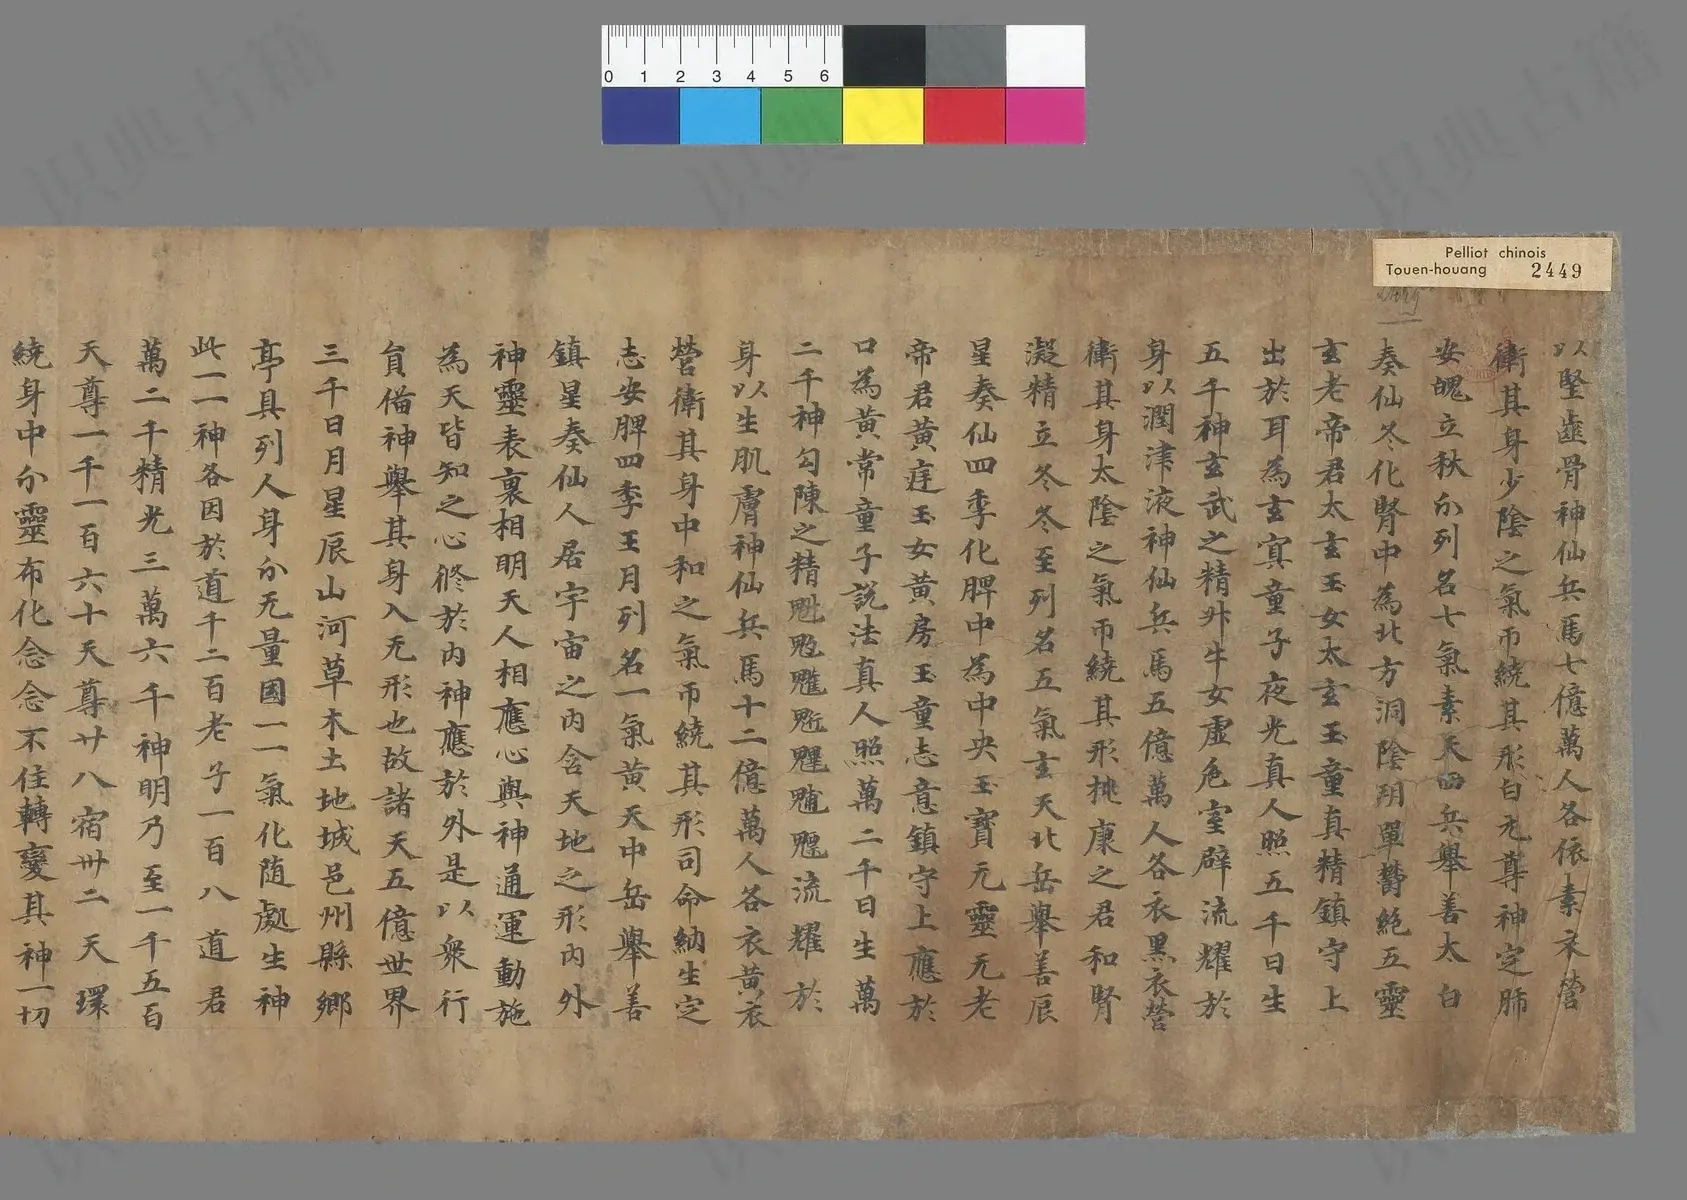 Pelliot chinois
Touen-houang 2449
0 1 2 3 4 5 6
以堅齒骨神仙兵馬七億萬人各依素衣營
衛其身少陰之氣帀繞其形白尢尊神定肺
安魄立秋分列名七氣素天西兵舉善太白
奏仙冬化腎中為北方洞陰朔單欝絕五靈
玄老帝君太玄玉女太玄玉童真精鎮守上
出於耳為玄冥童子夜光真人照五千日生
五千神玄武之精斗牛女虛危室壁流耀於
身以潤津液神仙兵馬五億萬人各衣黑衣營
衛其身太陰之氣帀繞其形桃康之君和腎
凝精立冬冬至列名五氣玄天北岳舉善辰
星奏仙四季化脾中為中央玉寶元靈元老
帝君黃庭玉女黃房玉童志意鎮守上應於
口為黃常童子說法真人照萬二千日生萬
二千神勾陳之精魁流耀於
身以生肌膚神仙兵馬十二億萬人各衣黃衣
營衛其身中和之氣帀繞其形司命納生定
志安脾四季王月列名一氣黃天中岳舉善
鎮星奏仙人居宇宙之內含天地之形內外
神靈表裏相明天人相應心與神通運動施
為天皆知之心修於內神應於外是以眾行
負俻神舉其身入无形也故諸天五億世界
三千日月星辰山河草木土地城邑州縣鄉
亭具列人身分无量國一一氣化随處生神
此一一神各因於道千二百老子一百八道君
萬二千精光三萬六千神明乃至一千五百
天尊一千一百六十天尊廿八宿卅二天環
繞身中分靈布化念念不住轉變其神一切
识典古籍